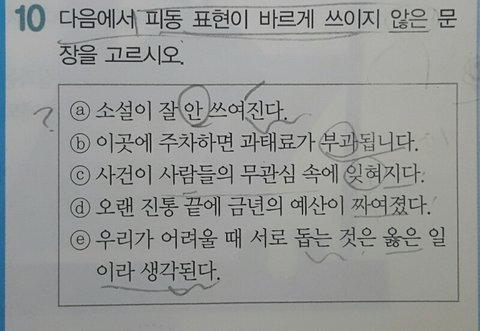 10 다음에서 피동 표현이 바르게 쓰이지 않은 문
장을 고르시오.
?
ⓐ 소설이 잘 안 쓰여진다.
ⓑ 이곳에 주차하면 과태료가 부과됩니다.
ⓒ 사건이 사람들의 무관심 속에 잊혀지다.
ⓓ 오랜 진통 끝에 금년의 예산이 짜여졌다.
ⓔ 우리가 어려울 때 서로 돕는 것은 옳은 일
이라 생각된다.